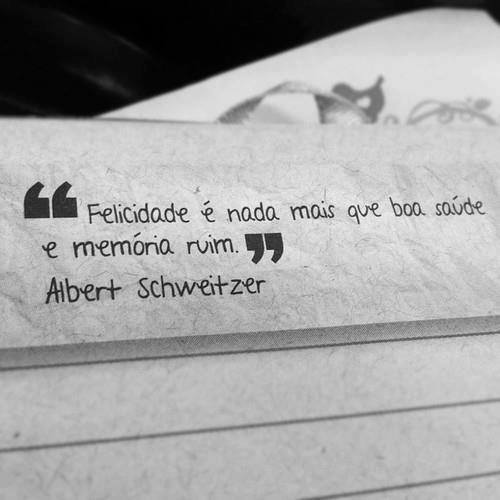 “Felicidade é nada mais que boa saúde
e memória ruim.”
Albert Schweitzer